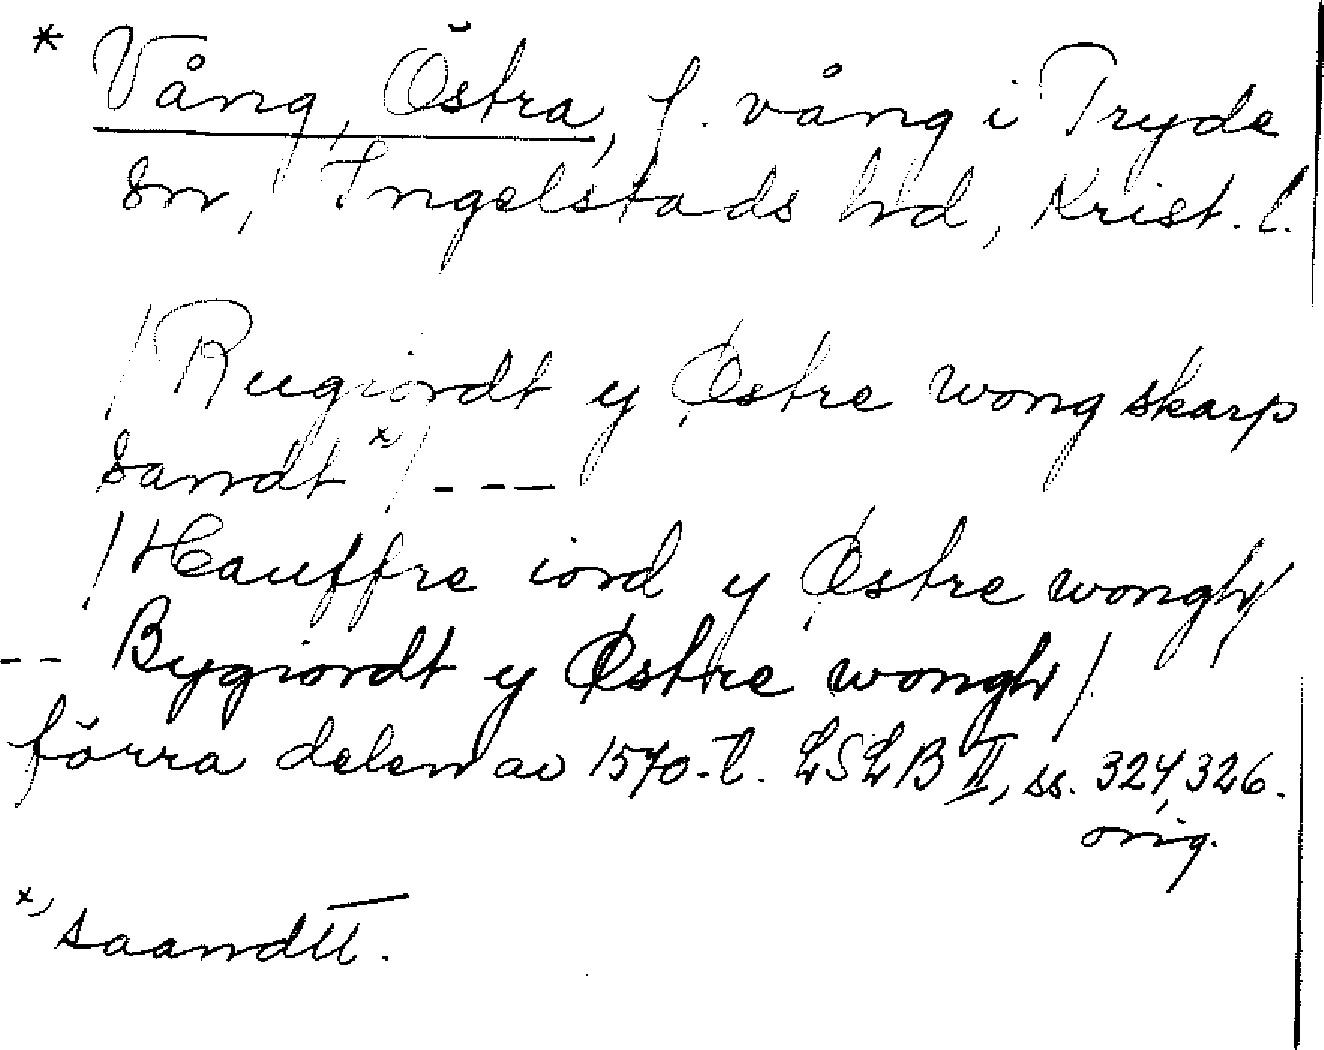 * Vång, Östra, f. vång i Tryde
sn, Ingelstads hd, Krist. l.
/Rugiordt y Østre wong skarp
sandt x)/ - - -
/Hauffre iord y Østre wongh/
-- Bygiordt y Østre wongh/
förra delen av 1570-t. LSLB II, ss. 324, 326.
orig.
x) saandtt.